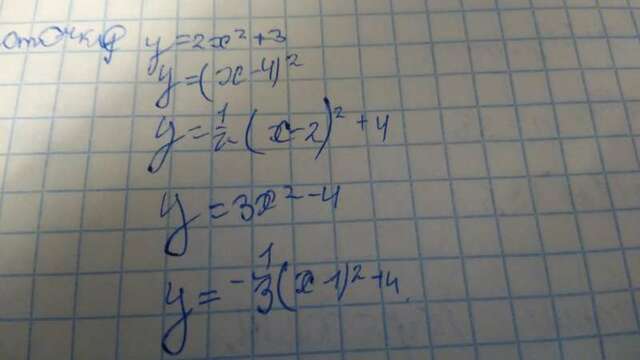 y=2x²+3
y=(x-4)²
y=½(x-2)²+4
y=3x²-4
y=-⅓(x-1)²+4